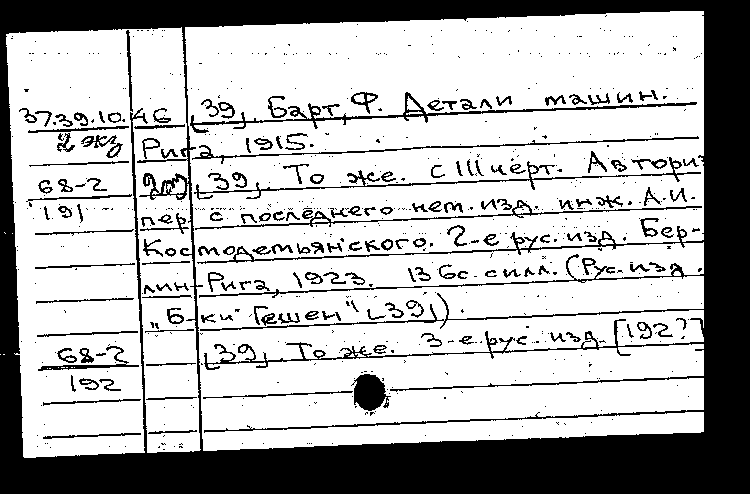 37.39.10.46 [39]. Барт, Ф. Детали машин.
2 экз Рига, 1915.
68-2 [39]. То же. С 111 черт. Авториз
191 пер. с последнего нем. изд. инж. А.И.
Космодемьянского. 2-е рус. изд. Бер-
лин-Рига, 1923. 136 с. с илл. (Рус. изд.
„Б-ки Гешен" [39]).
68-2 [39]. То же. 3-е рус. изд. [192?]
192